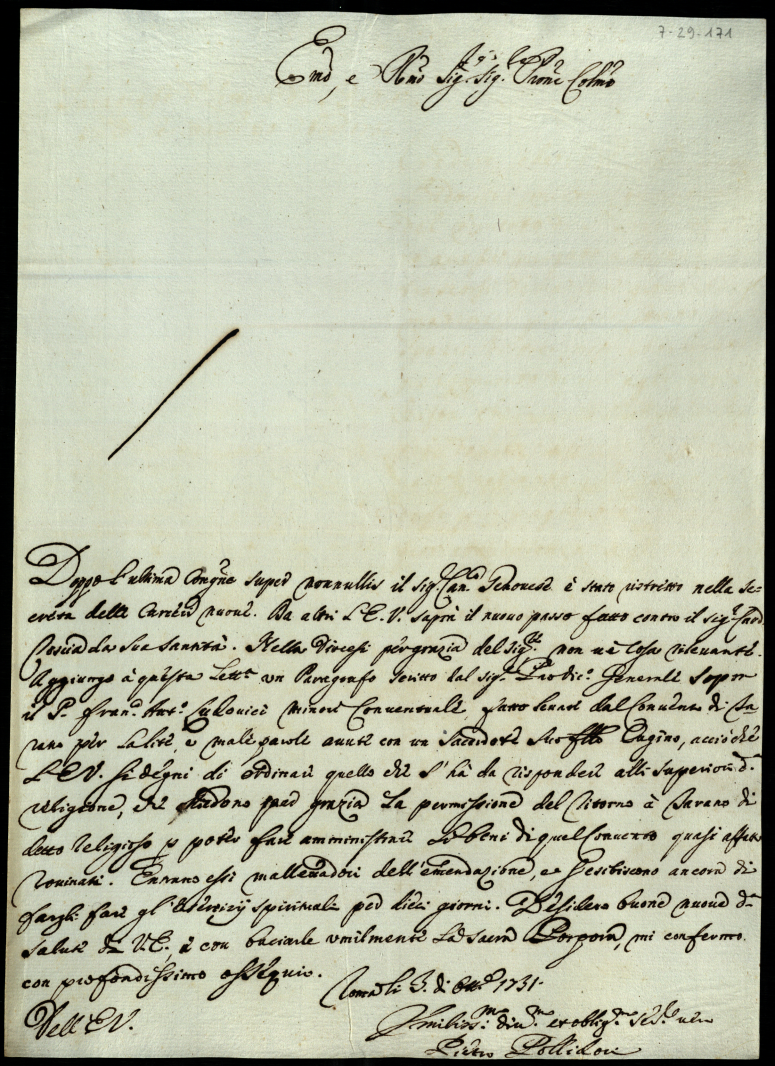 7-29-171
Emo, e Rmo Sig.r Sig.r Prone Colmo
Doppo l'ultima Congne super nonnullis il Sig.r Can.co Genovese è stato ristretto nella se-
creta delle Carceri nuove. Da altri L'E. V. saprà il nuovo passo fatto contro il Sig.r Card
Coscia da Sua Santità. Nella Diocesi per grazia del Sig.re non v'è cosa rilevante.
Aggiungo à questa Lett.a un Paragrafo scritto dal Sig.r Generale Sopra
il P. Fran.o Ant.o Ludovici Minore Conventuale, fatto levare dal Convento di Sa
rano per la lite, e male parole avute con un Sacerdote Suo Cugino, acciòchè
L'E V. si degni di ordinare quello che s'hà da rispondere alli Superiori d.a
religione, che chiedono per grazia la permissione del ritorno à Sarano di
detto religioso p poter fare amministrare li beni di quel Convento quasi affatto
rovinati. Entrano essi mallevadori dell'emendazione, e s'esibiscono ancora di
fargli fare gl'Esercizij spirituali per dieci giorni. Desidero buone nuove d.a
salute di V. E., e con baciarle umilmente la Sacra Porpora, mi confermo
con profondissimo ossequio.
Roma li 3. di Ott.e 1731.
Dell'E V.
Umiliss.mo div.mo et oblig.mo Ser.e vero
Pietro Pollidori